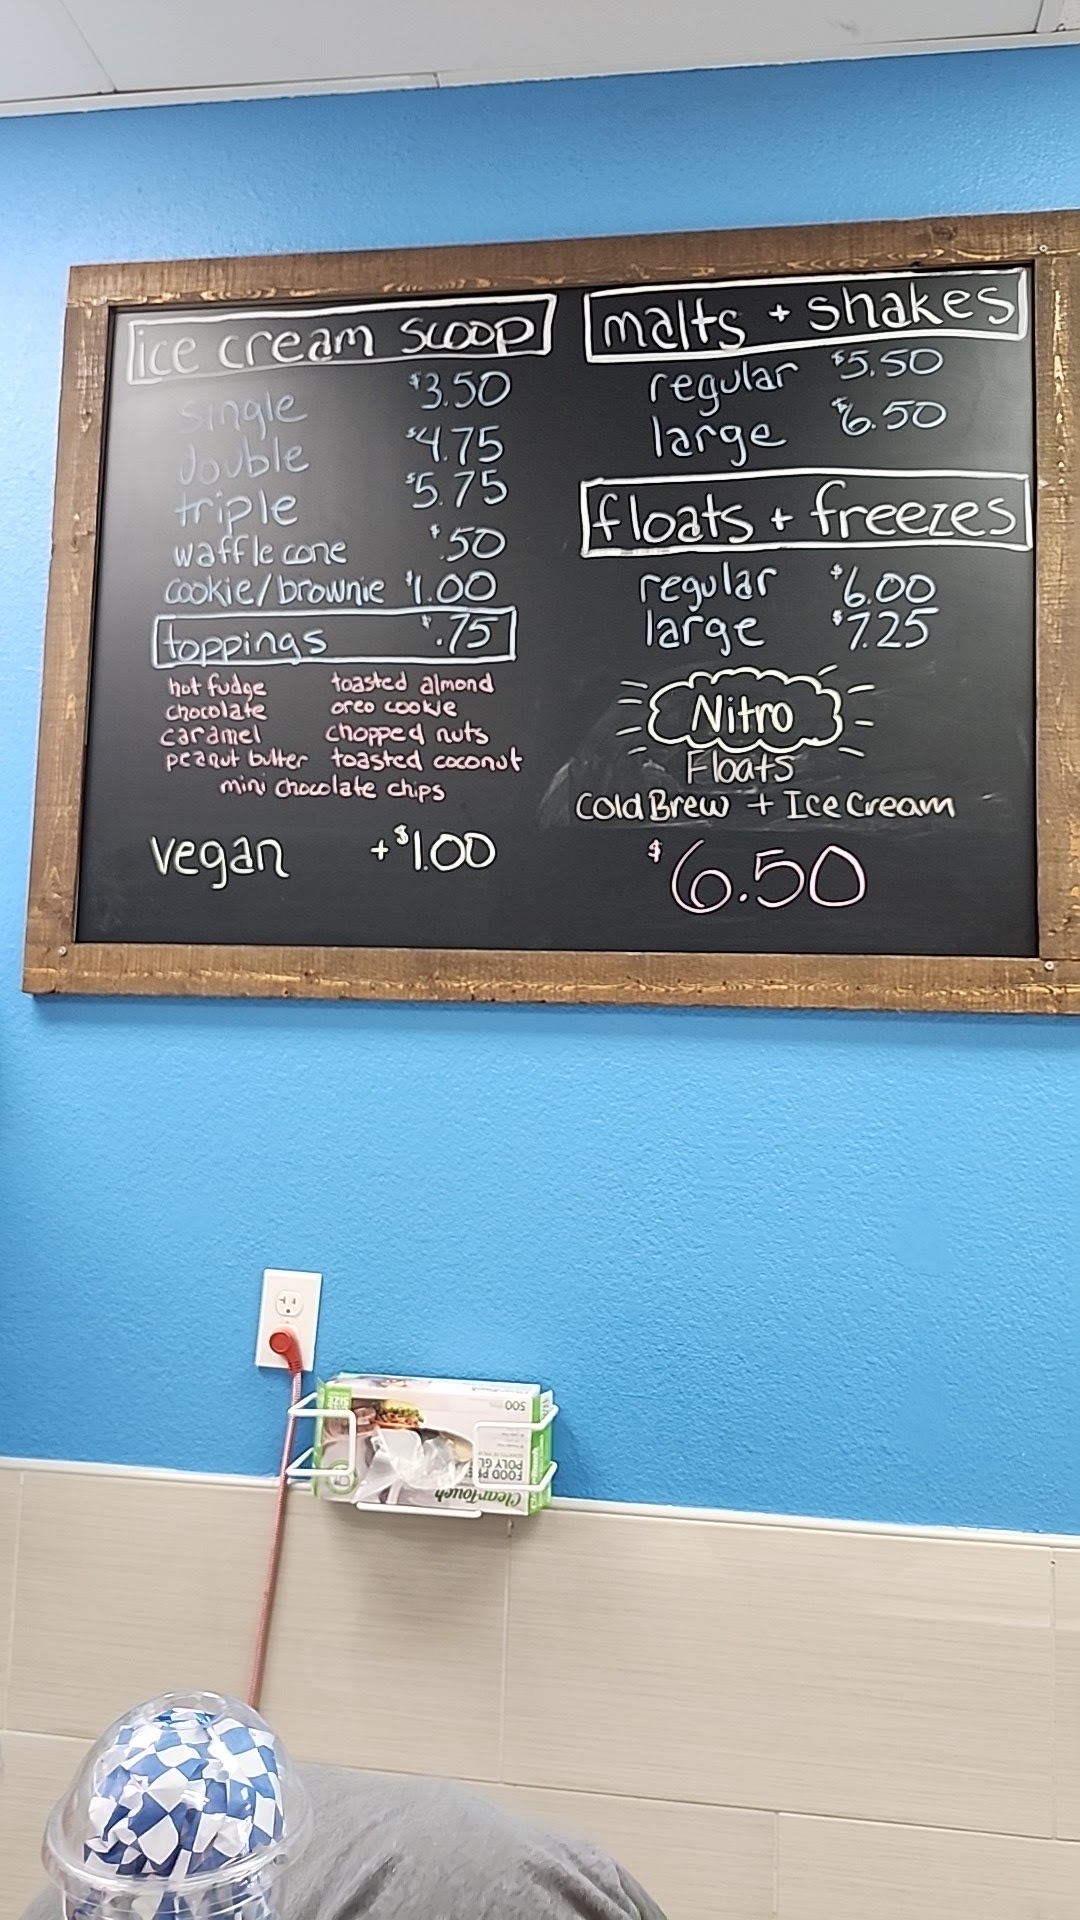 ice cream scoop
single $3.50
double $4.75
triple $5.75
waffle cone $.50
cookie/brownie $1.00
toppings $.75
hot fudge toasted almond
chocolate oreo cookie
caramel chopped nuts
peanut butter toasted coconut
mini chocolate chips
vegan +$1.00
malts + shakes
regular $5.50
large $6.50
floats + freezes
regular $6.00
large $7.25
Nitro
Floats
Cold Brew + Ice Cream
$6.50
500
FOOD
POLY GL
ClearTouch